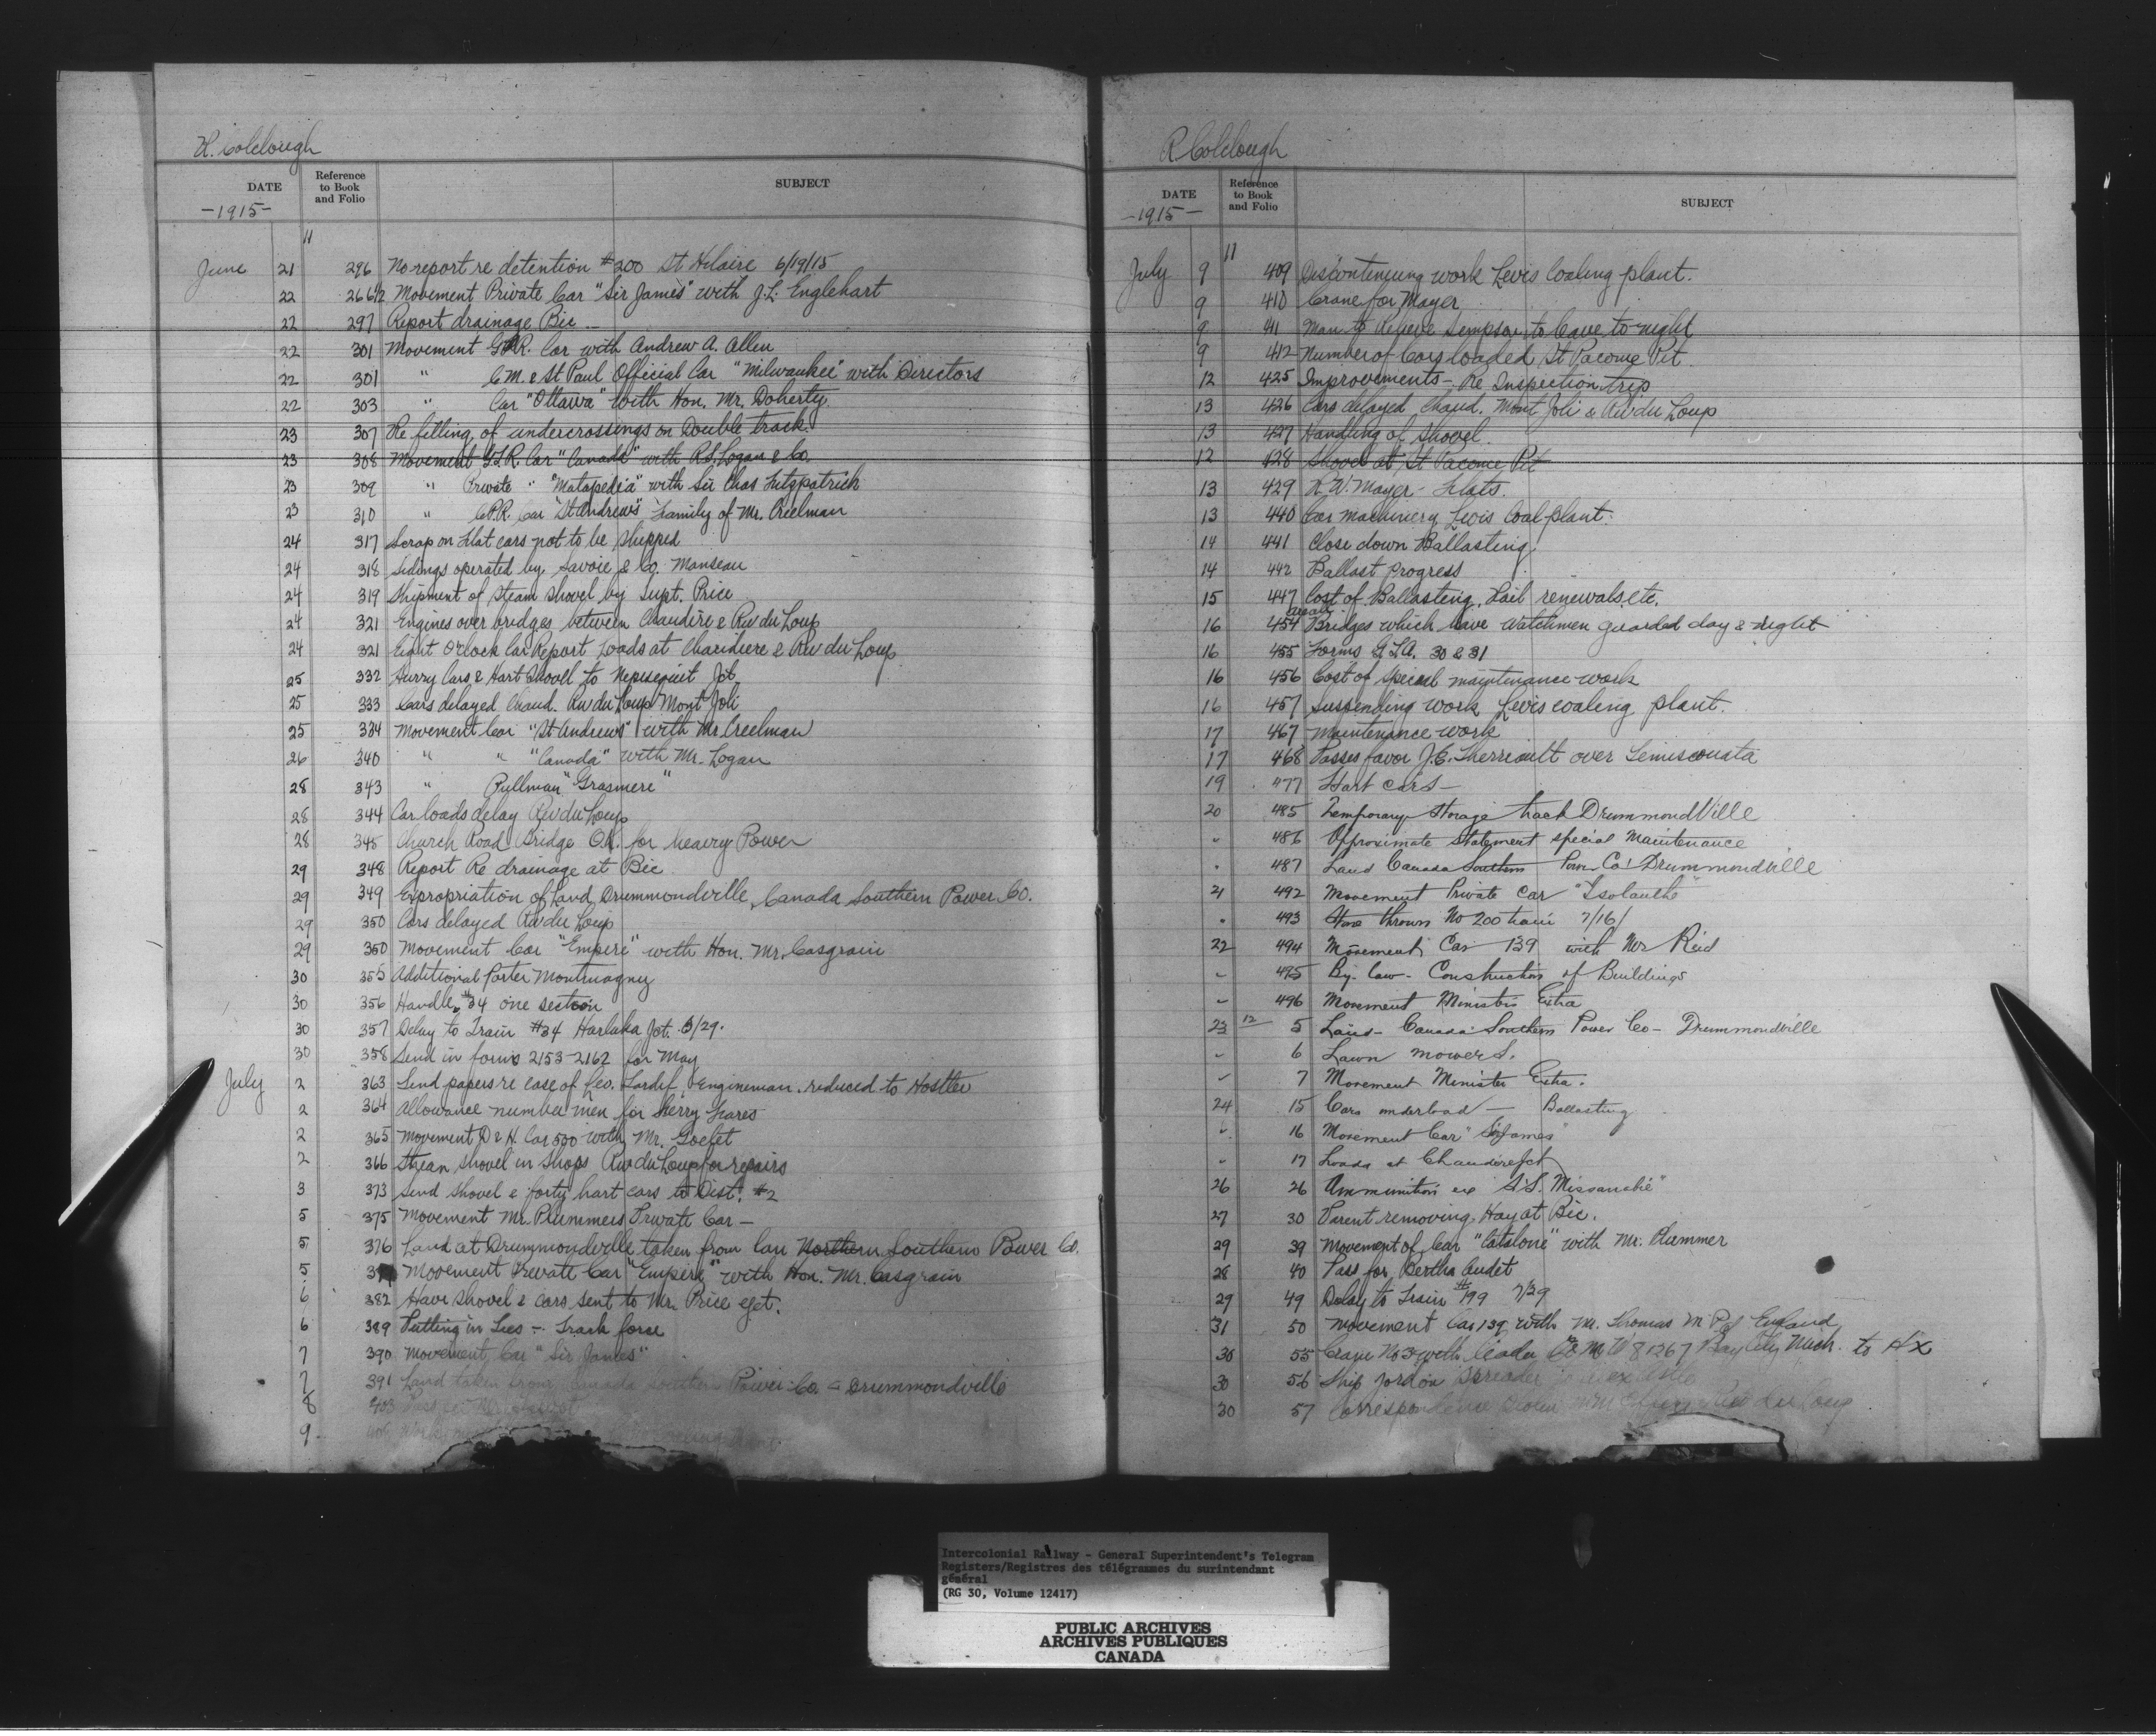 R. Colclough
DATE Reference to Book and Folio SUBJECT
-1915-
11
June 21 296 No report re detention #200 St Hilaire 6/19/15
22 266½ Movement Private Car "Sir James" with J.L. Englehart
22 297 Report drainage Bic -
22 301 Movement G.T.R. Car with Andrew A. Allen
22 301 " C.M. & St Paul Official Car "Milwaukee" with Directors
22 303 " Car "Ottawa" with Hon. Mr. Doherty
23 307 Re filling of undercrossings on Double track.
23 308 Movement G.T.R. Car "Canada" with R.S. Logan & Co.
23 309 " Private " "Matapedia" with Sir Chas Fitzpatrick
23 310 " C.P.R. Car "St Andrews" Family of Mr. Creelman
24 317 Scrap on Flat cars not to be shipped
24 318 Sidings operated by Savoie & Co. Manseau
24 319 Shipment of Steam Shovel by Supt. Price
24 321 Engines over bridges between Chaudiere & Riv du Loup
24 321 Eight O'clock Car Report Loads at Chaudiere & Riv du Loup
25 332 Hurry Cars & Hart Shovel to Nepisiguit Jct
25 333 Cars delayed Chaud. Riv du Loup Mont Joli
25 334 Movement Car "St Andrews" with Mr. Creelman
26 340 " " "Canada" with Mr. Logan
28 343 " Pullman "Grasmere"
28 344 Car loads delay Riv du Loup
28 345 Church Road Bridge O.K. for heavy Power
29 348 Report Re drainage at Bic
29 349 Expropriation of Land Drummondville, Canada Southern Power Co.
29 350 Cars delayed Riv du Loup
29 350 Movement Car "Empire" with Hon. Mr. Casgrain
30 355 Additional Porter Montmagny
30 356 Handle #34 one section
30 357 Delay to Train #34 Harlaka Jct. 6/29.
30 358 Send in forms 2153-2162 for May
July 2 363 Send papers re case of Geo. Tardif, Engineman. reduced to Hostler
2 364 Allowance number men for Sherry
2 365 Movement D & H. Car 500 with Mr. Goelet
2 366 Steam shovel in shops Riv du Loup for repairs
3 373 Send shovel & forty hart cars to Dist. #2
5 375 Movement Mr. Plummers Private Car -
5 376 Land at Drummondville taken from Can Northern Southern Power Co.
5 Movement Private Car "Empire" with Hon. Mr. Casgrain
6 382 Have shovel & cars sent to Mr. Price
6 389 Putting in Ties - Track force
7 390 Movement Car "Sir James"
7 391 Land taken from Canada Southern Power Co. - Drummondville
8 403
9
R Colclough
DATE Reference to Book and Folio SUBJECT
-1915-
11
July 9 409 Discontinuing work Levis Coaling plant.
9 410 Crane for Mayer
9 411 Man to Relieve Sampson to leave to-night
9 412 Number of Cars loaded St Pacome Pit
12 425 Improvements - Re Inspection trip
13 426 Cars delayed Chaud. Mont Joli & Riv du Loup
13 427 Handling of Shovel.
12 428 Shovel at St Pacome Pit
13 429 R.W. Mayer - Flats.
13 440 Car machinery Levis Coal plant.
14 441 Close down Ballasting.
14 442 Ballast progress
15 447 Cost of Ballasting, Rail renewals, etc.
16 454 Bridges which have Watchmen guarded day & night
16 455 Forms G.T.A. 30 & 31
16 456 Cost of special maintenance work
16 457 Suspending work Levis coaling plant.
17 467 Maintenance work
17 468 Passes favor J.E. Therriault over Temiscouata
19 477 Hart cars -
20 485 Temporary Storage track DrummondVille
" 486 Approximate Statement special Maintenance
" 487 Land Canada Southern Power Co. Drummondville
21 492 Movement Private Car "Isolanthe"
" 493 thrown No 200 train 7/16/
22 494 Movement Car 139 with Mr Reid
" 495 By-law - Construction of Buildings
" 496 Movement Ministers Extra
23 12 5 Land - Canada Southern Power Co - Drummondville
" 6 Lawn mowers.
" 7 Movement Minister Extra.
24 15 Cars underload - Ballasting
" 16 Movement Car "Sir James"
" 17 Loads at Chaudiere Jct
26 26 Ammunition ex S.S. "Missanabie"
27 30 Parent removing Hay at Bic.
29 39 Movement of Car "Catalone" with Mr. Plummer
28 40 Pass for Bertha Audet
29 49 Delay to Train #199 7/29
31 50 Movement Car 139 with Mr. Thomas M.P. of England
30 55 Crane No 3 with Bay City Mich. to Hx
30 56 Ship Jordon Spreader
30 57 Correspondence Riv du Loup
Intercolonial Railway - General Superintendent's Telegram
Registers/Registres des télégrammes du surintendant
général
(RG 30, Volume 12417)
PUBLIC ARCHIVES
ARCHIVES PUBLIQUES
CANADA